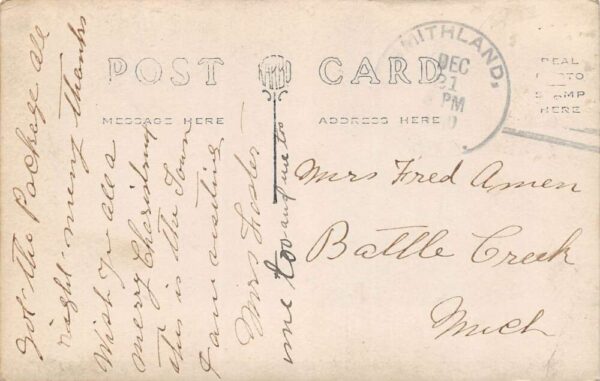 POST CARD
MESSAGE HERE
ADDRESS HERE
SMITHLAND,
DEC
31
PM
REAL
PHOTO
STAMP
HERE
Got the Package all
right meny thanks
Wish y all a
merry Charistmas
this is the Town
I am visiting
Mrs Foster
me too and me too
Mrs Fred Amen
Battle Creek
Mich